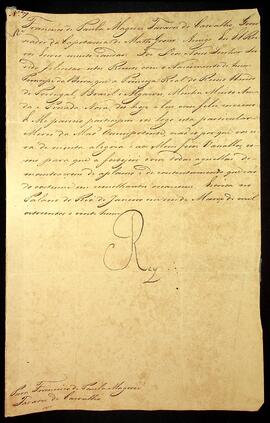 Francisco de Paula Magessi Tavares de Carvalho, Gover-
nador da Capitania de Matto Grosso Amigo. Eu El Rey
vos envio muito saudar. Deos Nosso Senhor
felicitar este Reino com o Nascimento de hum
Principe da Beira, que a Princeza Real do Reino Unido
de Portugal, Brazil e Algarves Minha Muito Ama-
da e Prezada Nora
Me pareceo participar-vos logo esta particular
Mercê da Mão Omnipotente, não só por que vos
de muita alegria
mos para que a festejeis com todas aquellas de-
monstraçoens de applauso e de contentamento que são
de costume em semelhantes occasioens. Escrita no
Palacio do Rio de Janeiro em seis de Março de mil
oitocentos e vinte hum
Rey
Para Francisco de Paula Magessi
Tavares de Carvalho